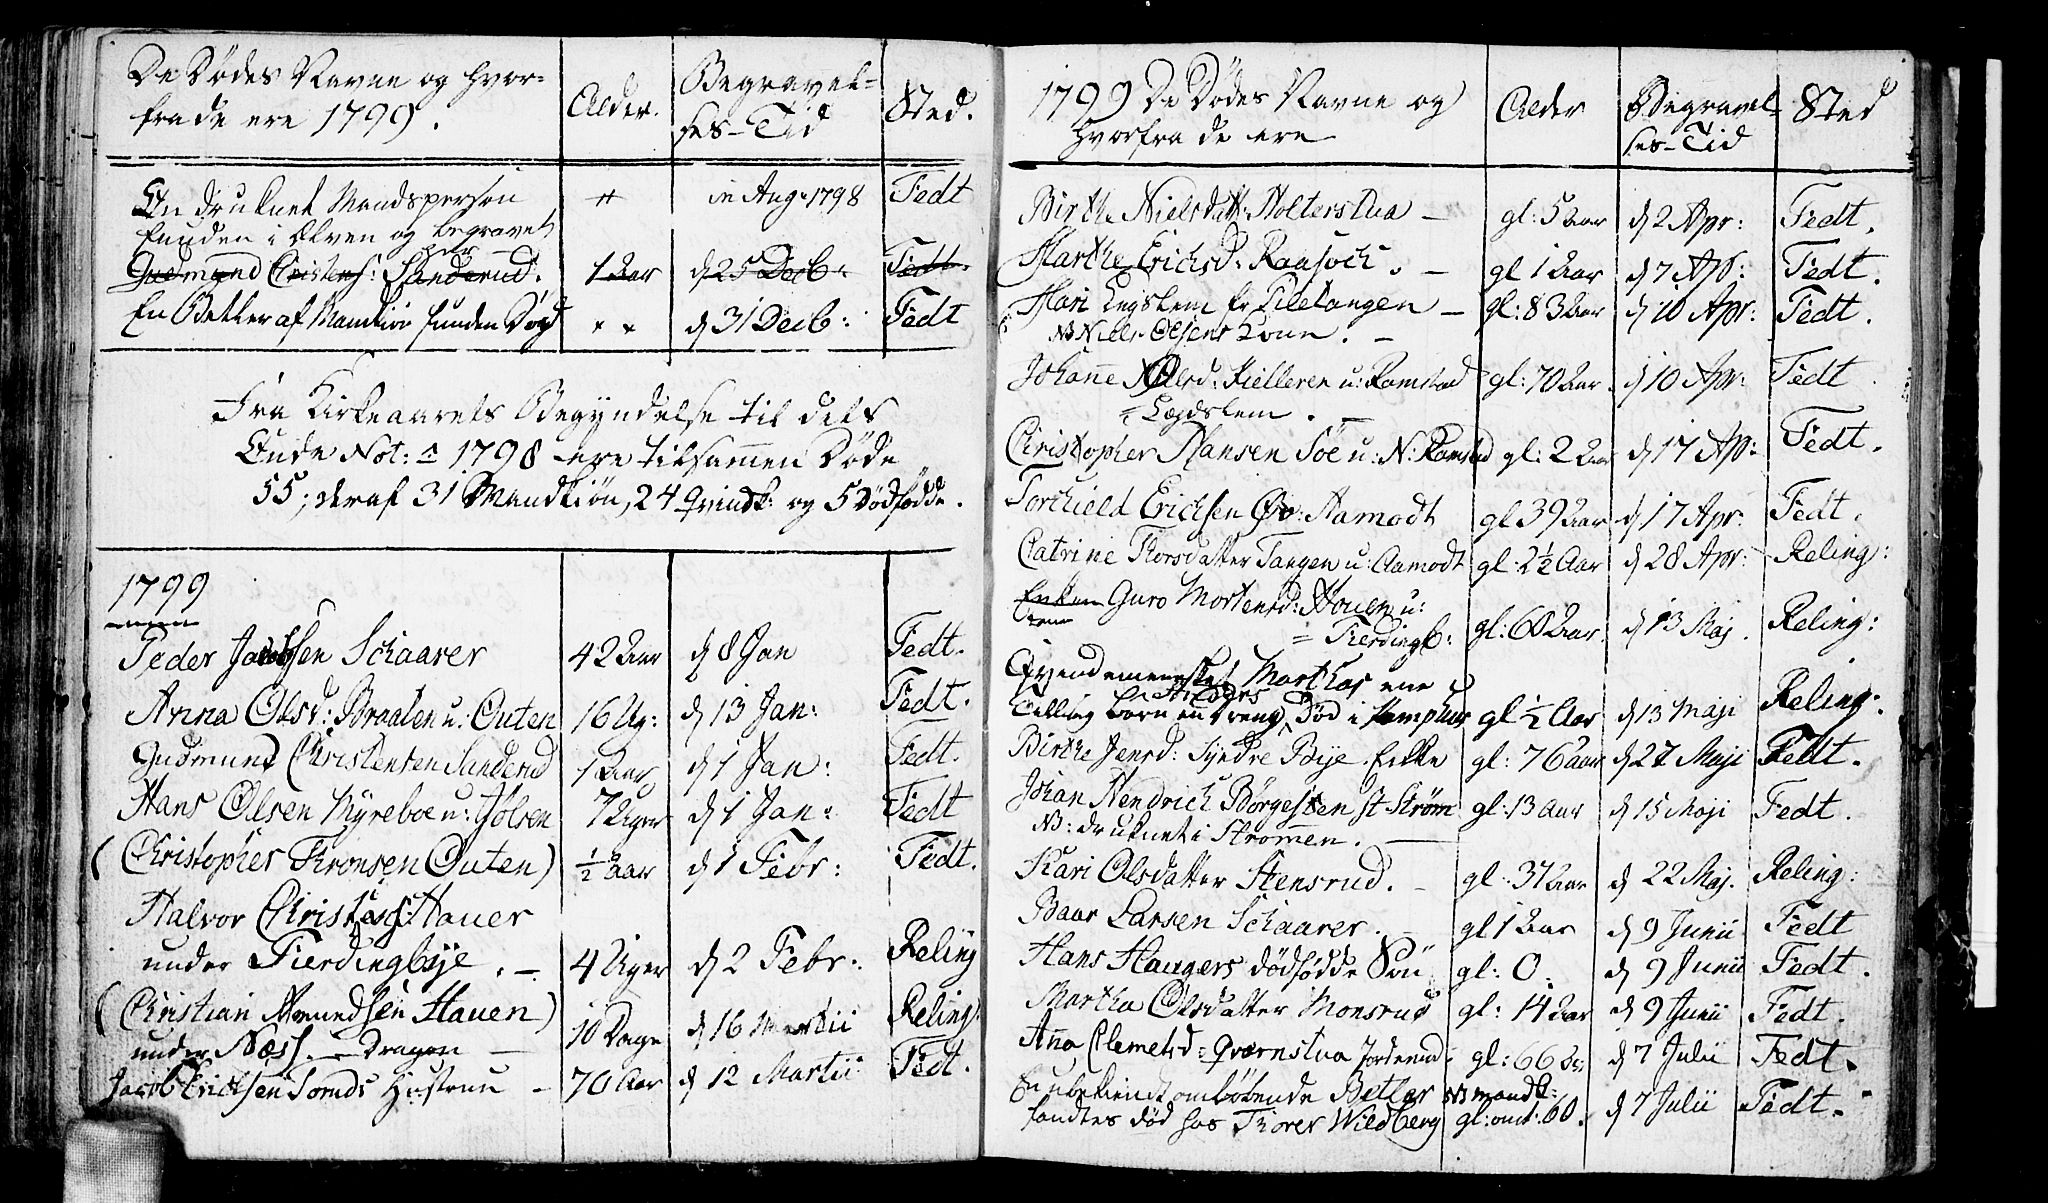 De Dødes Navne og hvor-
fra de ere 1799.
Alder.
Begravel-
ses-Tid
Sted.
En druknet Mandsperson
funden i Elven og begravet
her
in Aug: 1798
Fedt
Gudmund Christens: Sanderud.
1 Aar
d 25 Decb:
Fedt.
En Betler af Mandkiøn funden Død
d 31 Decb:
Fedt
Fra Kirkeaarets Begyndelse til dets
Ende Not: 1798 ere tilsammen Døde
55; deraf 31 Mandkiøn, 24 Qvindk: og 5 Dødfødde.
1799
Peder Jacobsen Schaarer
42 Aar
d 8 Jan
Fedt.
Anna Olsd: Braaten u: Outen
16 Ug:
d 13 Jan:
Fedt.
Gudmund Christensen Sanderud
1 Aar
d 1 Jan:
Fedt.
Hans Olsen Myreboe u: Jølsen
7 Uger
d 1 Jan:
Fedt
(Christopher Thronsen Outen)
½ Aar
d 1 Febr:
Fedt.
Halvor Christens: Hauer
under Fierdingbye. —
4 Uger
d 2 Febr:
Reling
(Christian Amundsen Hauen)
under Næss. — Dragon —
10 Dage
d 16 Martii
Reling:
Jacob Erichsen Tomds Hustrue —
70 Aar
d 12 Martii
Fedt.
1799 De Dødes Navne og
hvorfra de ere
Alder
Begravel-
ses-Tid
Sted
Birthe Nielsdatt: Holterstua —
gl: 5 Aar
d 2 Apr:
Fedt.
Marthe Erichsd: Raasoch. —
gl 1 Aar
d 7 Ap:
Fedt.
Mari Legslem fr Piletangen —
NB Niels Olsens Kone. —
gl: 83 Aar
d 10 Apr:
Fedt.
Johanne Olsd: Kielleren u: Ramstad
= Legdslem. —
gl: 70 Aar.
d 10 Apr:
Fedt
Christopher Hansen Söe u: N: Ramstad
gl: 2 Aar
d 17 Ap:
Fedt.
Torchield Erichsen Øv: Aamodt
gl 39 Aar
d 17 Apr:
Fedt.
Catrine Thorsdatter Tangen u: Aamodt
gl: 2½ Aar
d 28 Apr:
Reling:
Enken Guro Mortensd: Houen u:
= Fierdingb:
gl: 60 Aar
d 13 Maj.
Reling:
Qvendemennesket Marthas ene
Tvilling barn en dreng, Død i
gl ½ Aar
d 13 Maji
Reling:
Birthe Jensd: Syndre Bye. Enke
gl: 76 aar
d 27 Maji
Fedt.
Johan Hendrich Børgesen St-Strøm
NB: druknet i Strømmen. —
gl: 13 Aar
d 15 Maji
Fedt.
Kari Olsdatter Stensrud. —
gl: 37 Aar
d 22 Maj.
Reling:
Baar Larsen Schaarer. —
gl 1 Aar
d 9 Junii
Fedt
Hans Haugers dødfødde Søn
gl: 0.
d 9 Junii
Fedt.
Martha Olsdatter Monsrud
gl: 14 Aar
d 9 Junii
Fedt.
Ana Clemetsd: Qværnstua
gl: 66 Aar
d 7 Julii
Fedt.
En ubekiendt omløbende Betler NB mandk:
fandtes død hos Thorer Wildberg
gl: omt: 60.
d 7 Julii
Fedt.